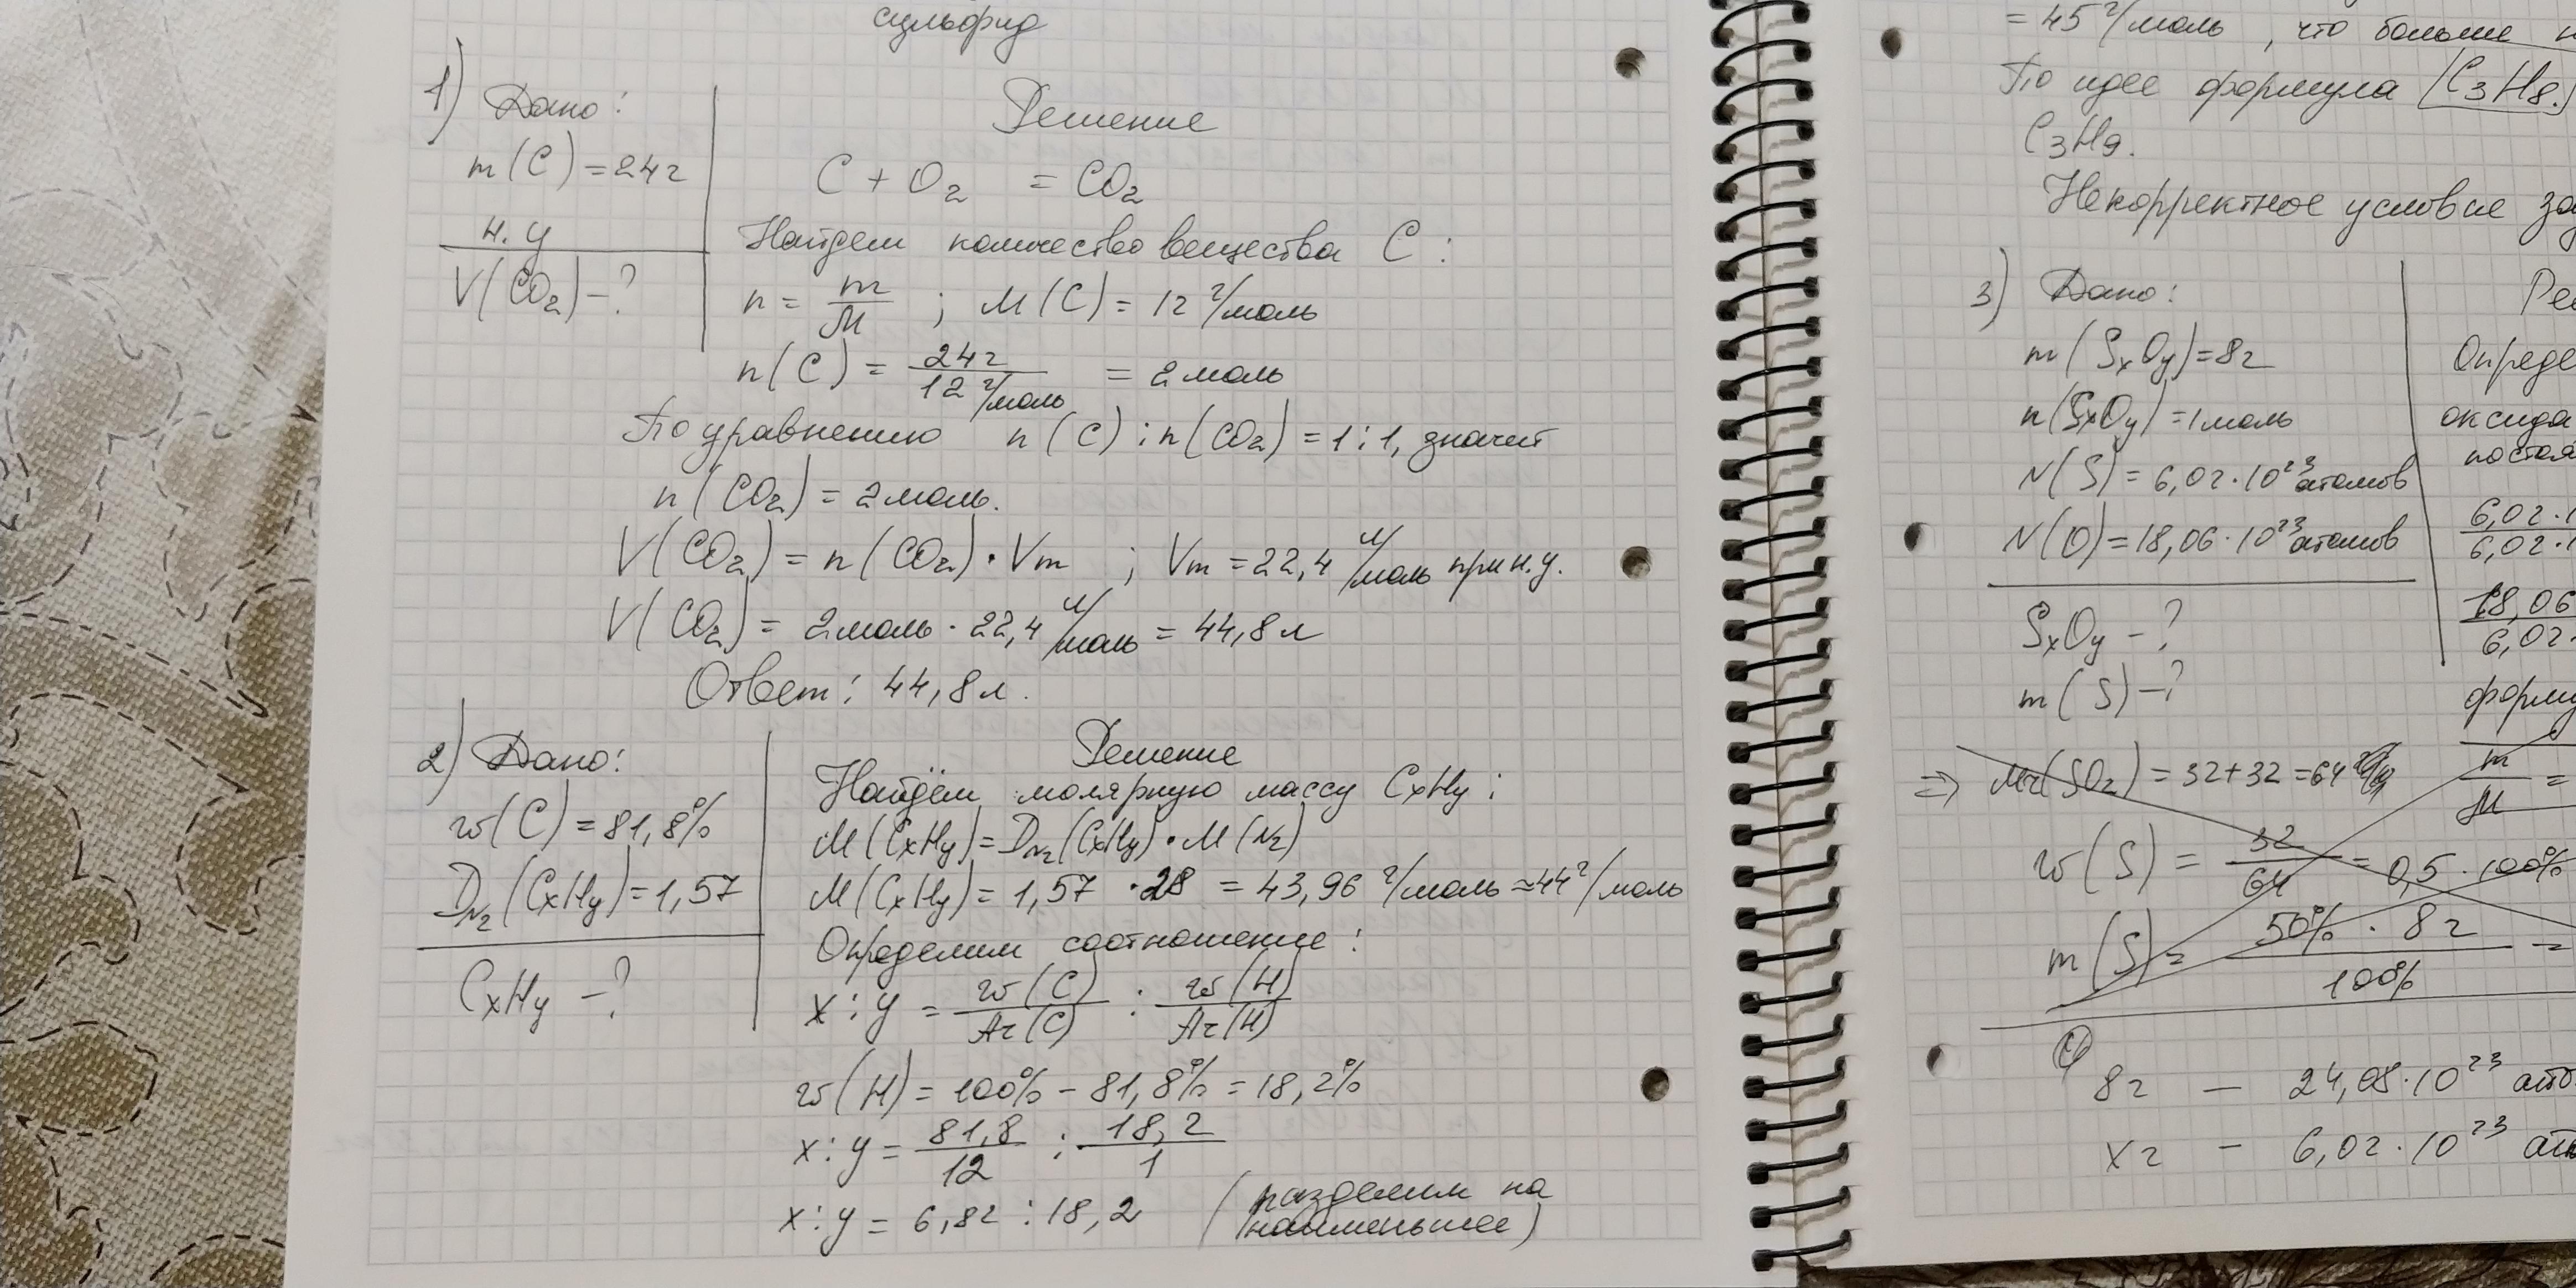 сульфид
1) Дано:
m(C)=24г
н.у
V(CO₂)-?
Решение
C + O₂ = CO₂
Найдем количество вещества C:
n = m/M ; M(C) = 12 г/моль
n(C) = 24г/12 г/моль = 2 моль
По уравнению n(C) : n(CO₂) = 1:1, значит
n(CO₂) = 2 моль.
V(CO₂) = n(CO₂) · Vm ; Vm = 22,4 л/моль при н.у.
V(CO₂) = 2 моль · 22,4 л/моль = 44,8 л
Ответ: 44,8 л.
2) Дано:
w(C) = 81,8%
D_N₂(CxHy) = 1,57
CxHy -?
Решение
Найдём молярную массу CxHy:
M(CxHy) = D_N₂(CxHy) · M(N₂)
M(CxHy) = 1,57 · 28 = 43,96 г/моль ≈ 44 г/моль
Определим соотношение:
x : y = w(C)/Ar(C) : w(H)/Ar(H)
w(H) = 100% - 81,8% = 18,2%
x : y = 81,8/12 : 18,2/1
x : y = 6,82 : 18,2 (разделим на
наименьшее)
= 45 г/моль, что больше
По идее формула C₃H₈.
C₃H₉.
Некорректное условие
3) Дано:
m(SxOy) = 8г
n(SxOy) = 1 моль
N(S) = 6,02 · 10²³ атомов
N(O) = 18,06 · 10²³ атомов
SxOy -?
m(S) -?
оксида
6,02 ·
6,02 ·
18,06
6,02
⇒ Mr(SO₂) = 32+32 = 64
m/M =
w(S) = 32/64 = 0,5 · 100%
m(S) = 50% · 8г/100% =
8г — 24,08 · 10²³
xг — 6,02 · 10²³